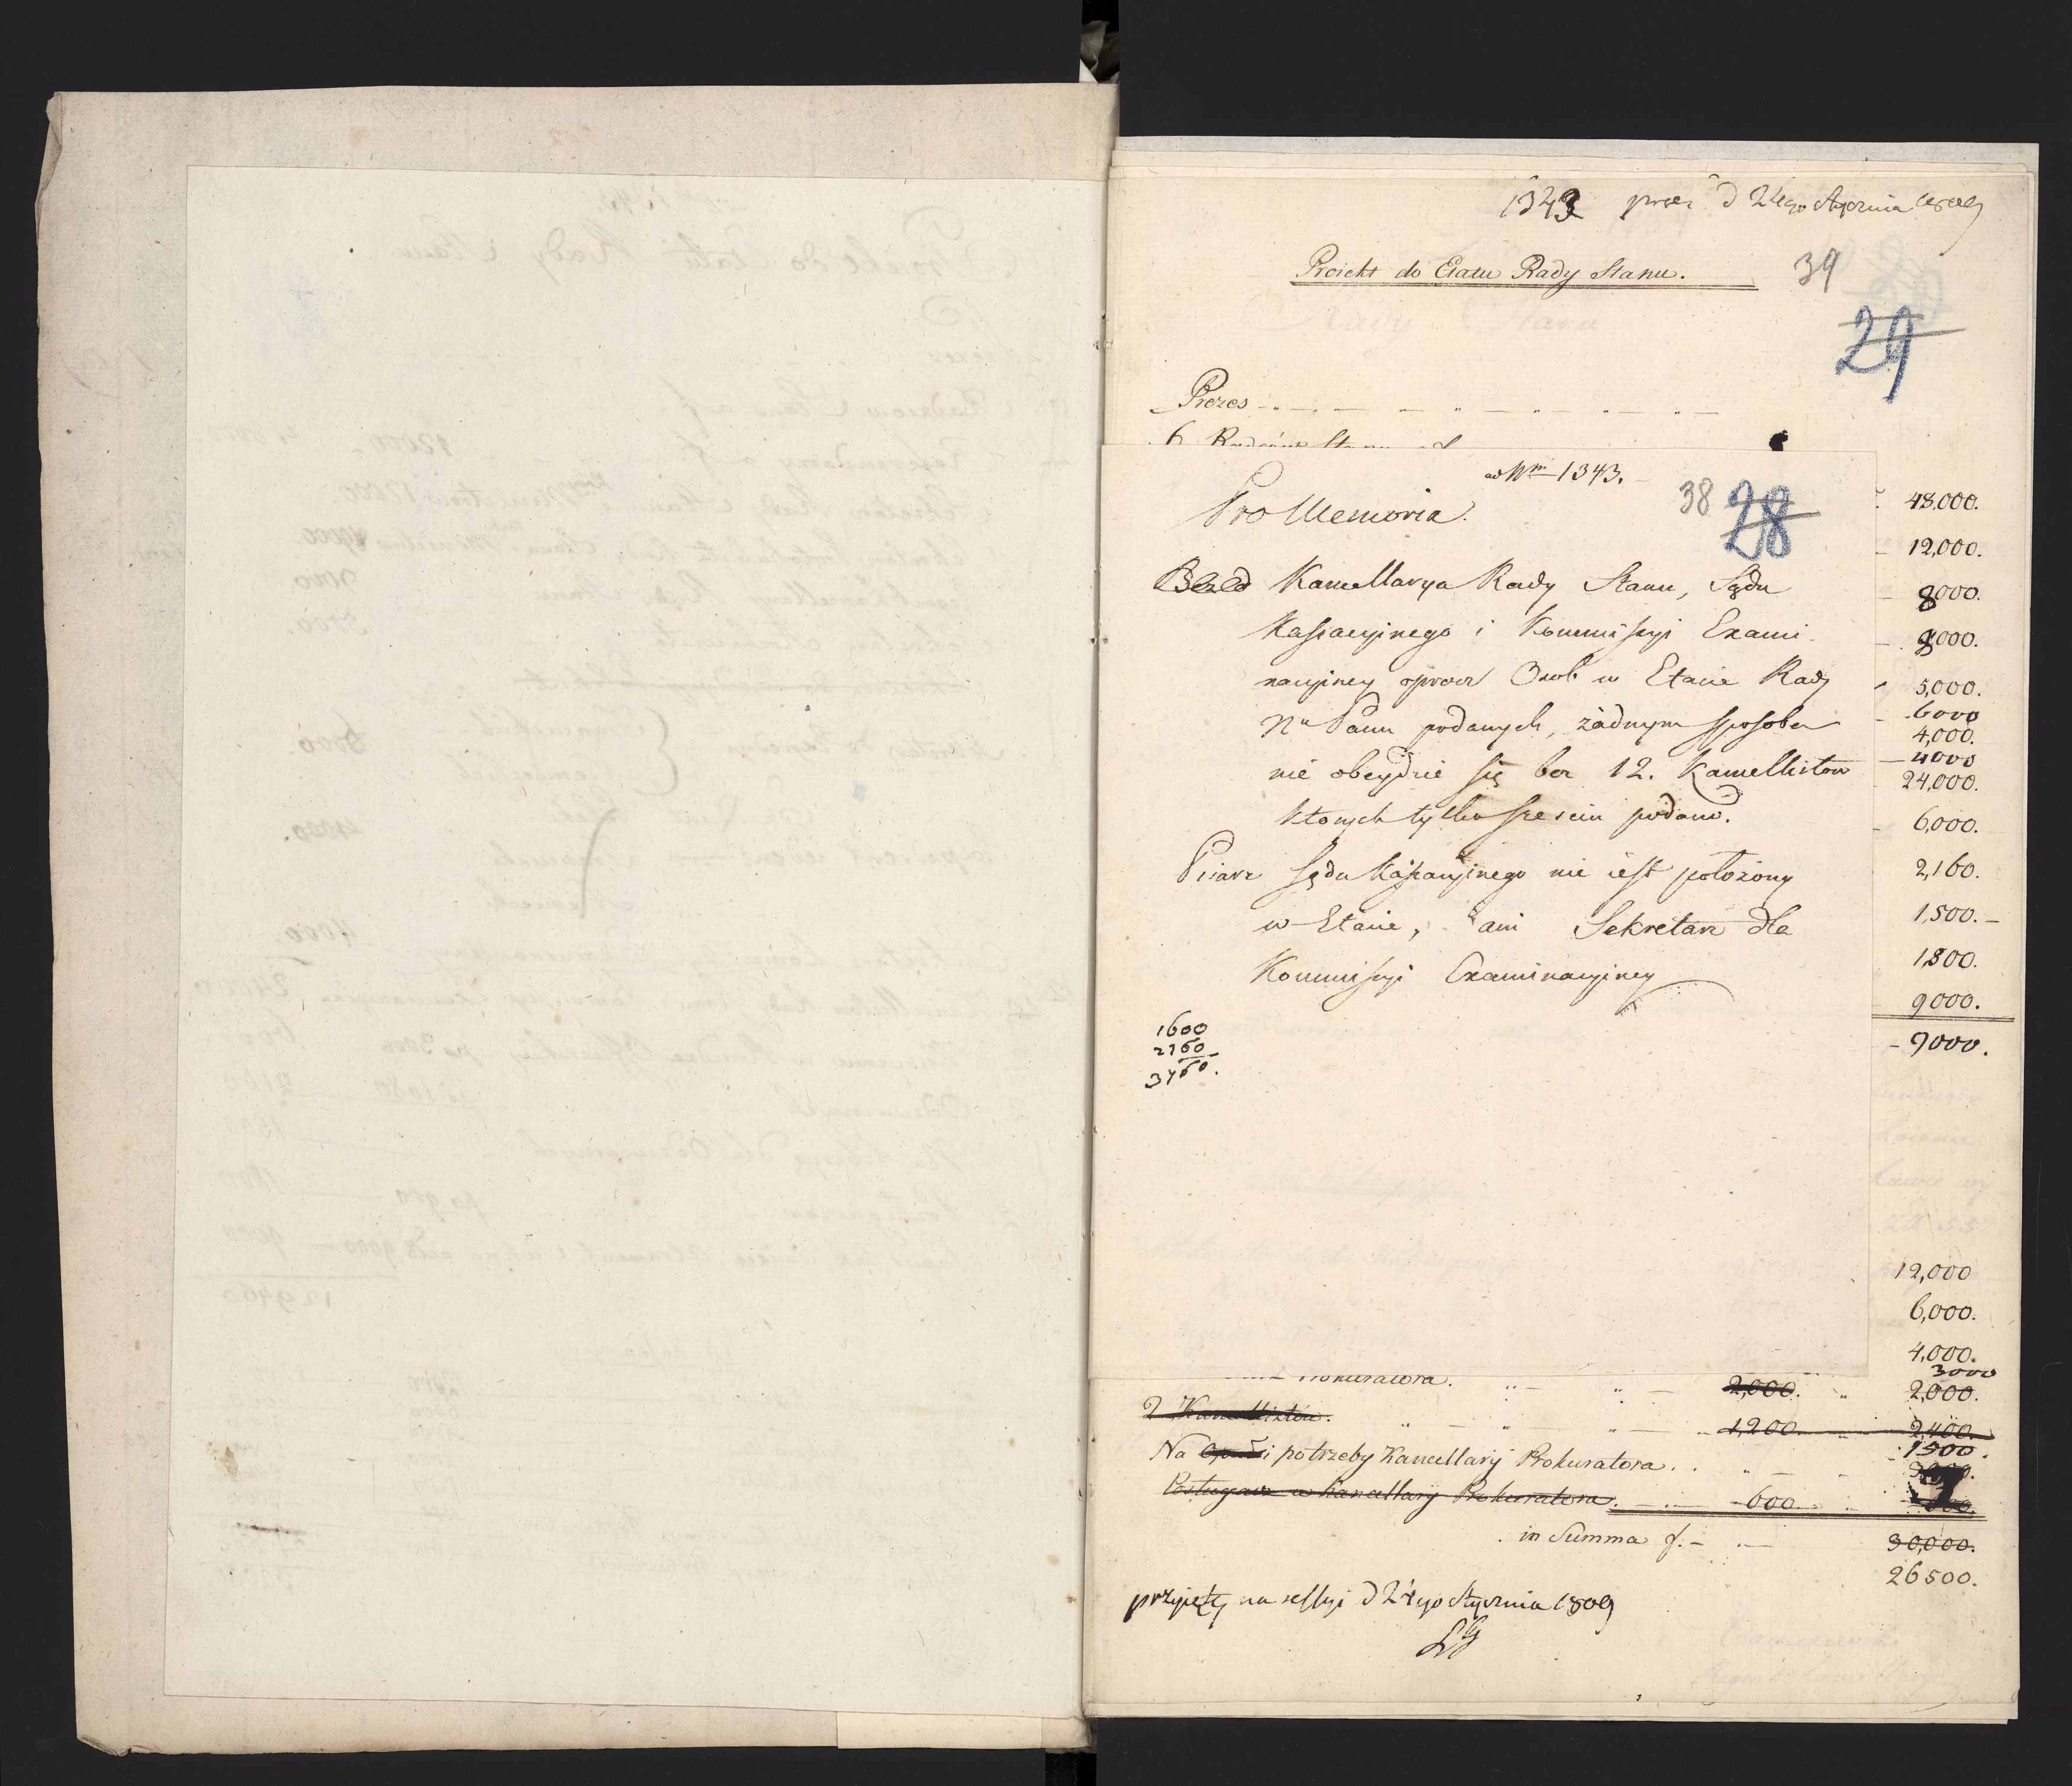 1343 prez: d 24go Stycznia 1809
Proiekt do Etatu Rady Stanu.
39
29
Prezes
6 Radców Stanu
ad Nrm 1343.
Pro Memoria.
38 28
Kancellarya Rady Stanu, Sądu
Kassacyjnego i Kommissyi Exami-
nacyjney oprocz Osob w Etacie Rady
Nu Panu podanych, żadnym sposobem
nie obeydzie się bez 12. Kancellistow
ktorych tylko sześciu podano.
Pisarz Sądu Kassacyjnego nie iest położony
w Etacie, ani Sekretarz dla
Kommissyi Examinacyjney
1600
2160
3760.
48,000.
12,000.
8000.
9000.
5,000.
6000
4,000.
4000
24,000.
6,000.
2,160.
1,500.
1,800.
9000.
9000.
12,000
6,000.
4,000.
3000
Prokuratora. 2,000. 2,000.
2 Kancellistów. 1,200. 2,400.
1500.
Na Opał i potrzeby Kancellaryi Prokuratora.
Posługacz w Kancellaryi Prokuratora. 600. 600.
in Summa f. 30,000.
26500.
przyięty na sessyi d 24go Stycznia 1809